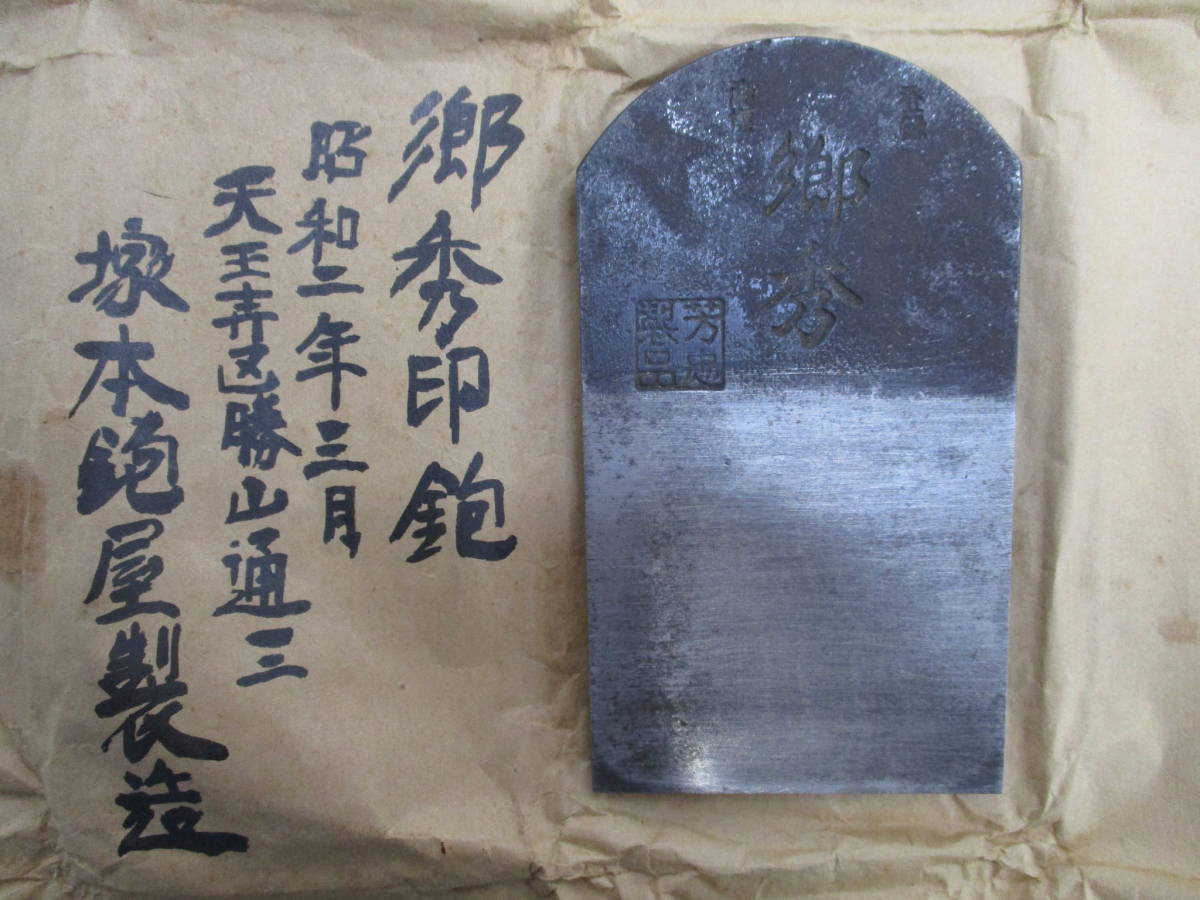 郷秀印鉋
昭和二年三月
天王寺区勝山通三
塚本鉋屋製造
郷秀
芳忠
製品